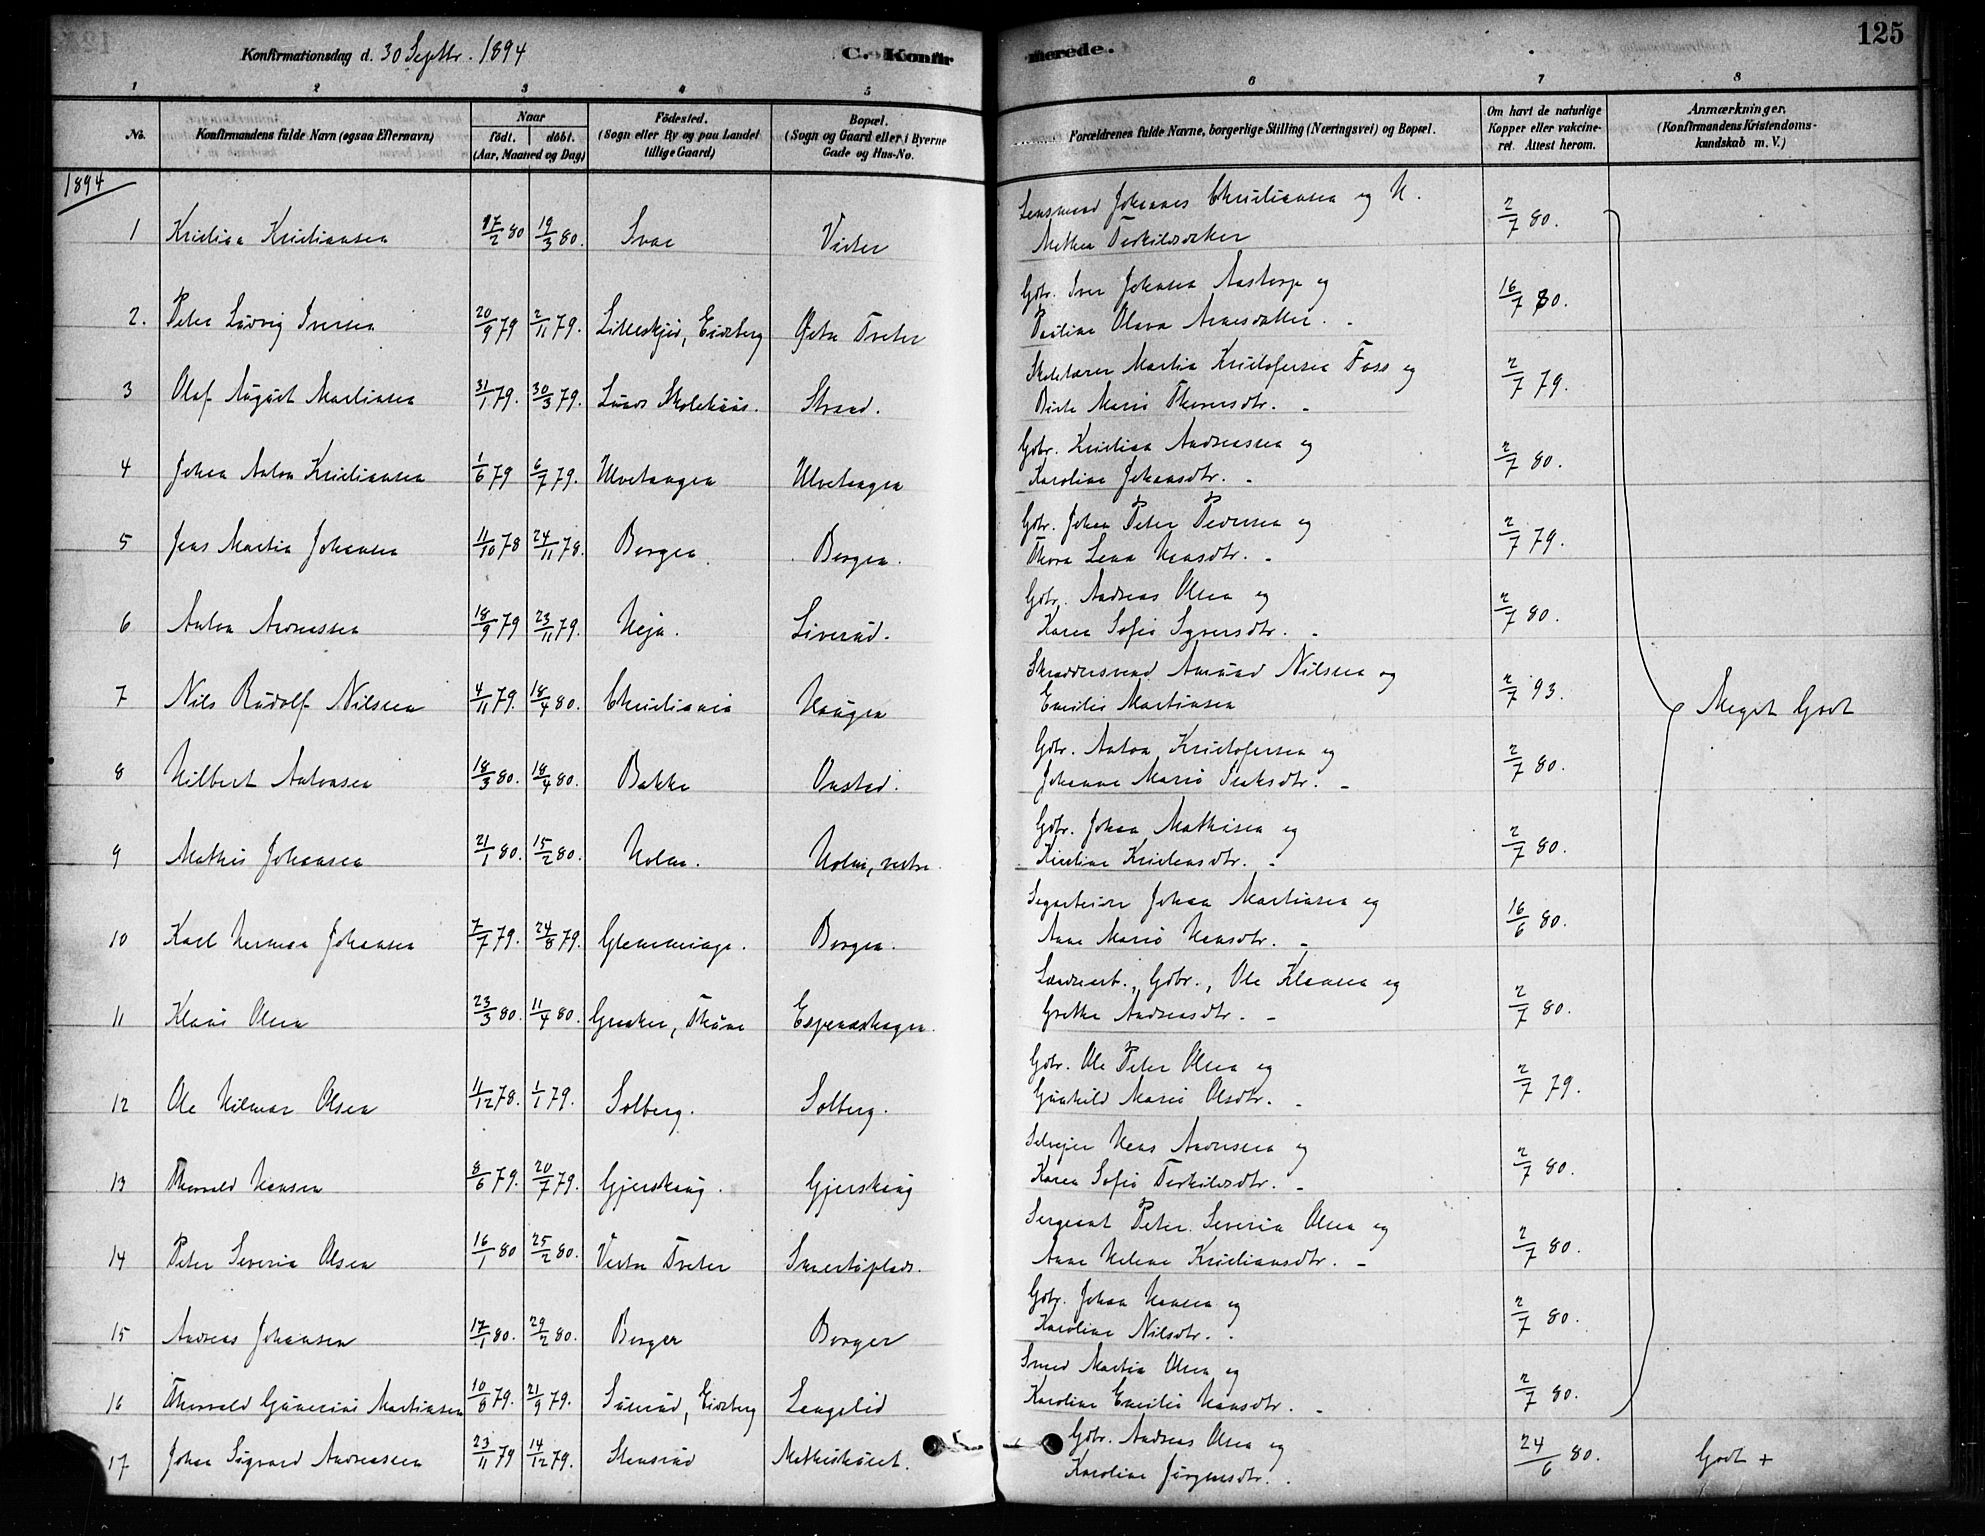 125
Konfirmationsdag d. 30 Septbr. 1894
C. Konfirmerede.
1 2 3 4 5 6 7 8
No.
Konfirmandens fulde Navn (ogsaa Efternavn)
Naar
födt. döbt.
(Aar, Maaned og Dag)
Födested.
(Sogn eller By og paa Landet
tillige Gaard)
Bopæl.
(Sogn og Gaard eller i Byerne
Gade og Hus-No.
Forældrenes fulde Navne, borgerlige Stilling (Næringsvei) og Bopæl.
Om havt de naturlige
Kopper eller vakcine-
ret. Attest herom.
Anmærkninger.
(Konfirmandens Kristendoms-
kundskab m. V.)
1894
1 Kristian Kristiansen 17/2 80 19/3 80. Svae Vister
Lensmand Johannes Christiansen og H.
Mathea Terkildsdatter 2/7 80.
2. Peter Ludvig Iversen 20/9 79 2/11 79. Lilleskjid, Eidsberg Østre Tveter
Gbr. Iver Johansen Aastorp og
Pauline Olava Arnesdatter. 16/7 80.
3 Olaf August Martinsen 31/1 79. 30/3 79. Lunds Skolehuus. Strand.
Skolelærer Martin Kristofersen Foss og
Birte Marie Thoresdtr. 2/7 79.
4 Johan Anton Kristiansen 1/6 79 6/7 79. Ulvetangen Ulvetangen
Gbr. Kristian Andreassen og
Karoline Johansdtr. 2/7 80.
5 Jens Martin Johansen 11/10 78 24/11 78. Borgen Borgen.
Gbr. Johan Peter Pedersen og
Thora Lena Hansdtr. 2/7 79.
6 Anton Andreassen 18/9 79 23/11 79. Heja. Liverud.
Gbr. Andreas Olsen og
Karen Sofie Syversdtr. 2/7 80.
7 Nils Rudolf Nilsen 4/11 79. 18/4 80. Christiania Haugen
Skræddersvend Amund Nilsen og
Emilie Martinsen 2/7 93.
Meget Godt
8 Hilbert Antonsen 18/3 80. 18/4 80. Bakke Onstad.
Gbr. Anton Kristofersen og
Johanne Marie Isaksdtr. 2/7 80.
9 Mathis Johansen 21/1 80. 15/2 80. Holm. Holm, vestre
Gbr. Johan Mathisen og
Kristine Kristensdtr. 2/7 80.
10 Karl Herman Johansen 7/7 79. 24/8 79. Glemminge. Borgen.
Sagarbeider Johan Martinsen og
Anne Marie Hansdtr. 16/6 80.
11 Klaus Olsen 23/3 80. 11/4 80. Greaker, Thune Espenæshagen
Gbr., Ole Klausen og
Grethe Andreasdtr. 2/7 80.
12 Ole Hilmar Olsen 11/12 78. 1/1 79. Solberg. Solberg.
Gbr. Ole Peter Olsen og
Gunhild Marie Olsdtr. 2/7 79.
13 Thorvald Hansen 8/6 79. 20/7 79. Gjerskaug. Gjerskaug
Selveier Hans Andersen og
Karen Sofie Terkildsdtr. 2/7 80.
14 Peter Severin Olsen 16/1 80 25/2 80. Vestre Tveter Smertuplads.
Sergeant Peter Severin Olsen og
Anne Helene Kristiansdtr. 2/7 80.
15 Andreas Johansen 17/1 80. 29/2 80. Borger Borger
Gbr. Johan Hansen og
Karoline Nilsdtr. 2/7 80.
16 Thorvald Gunerius Martinsen 10/8 79. 21/9 79. Eidsberg Langelid
Smed Martin Olsen og
Karoline Emilie Hansdtr. 2/7 80.
17 Johan Sigvard Andreassen 23/11 79 14/12 79. Stensrud Mathishuset.
Gbr. Andreas Olsen og
Karoline Jörgensdtr. 24/6 80. Godt +